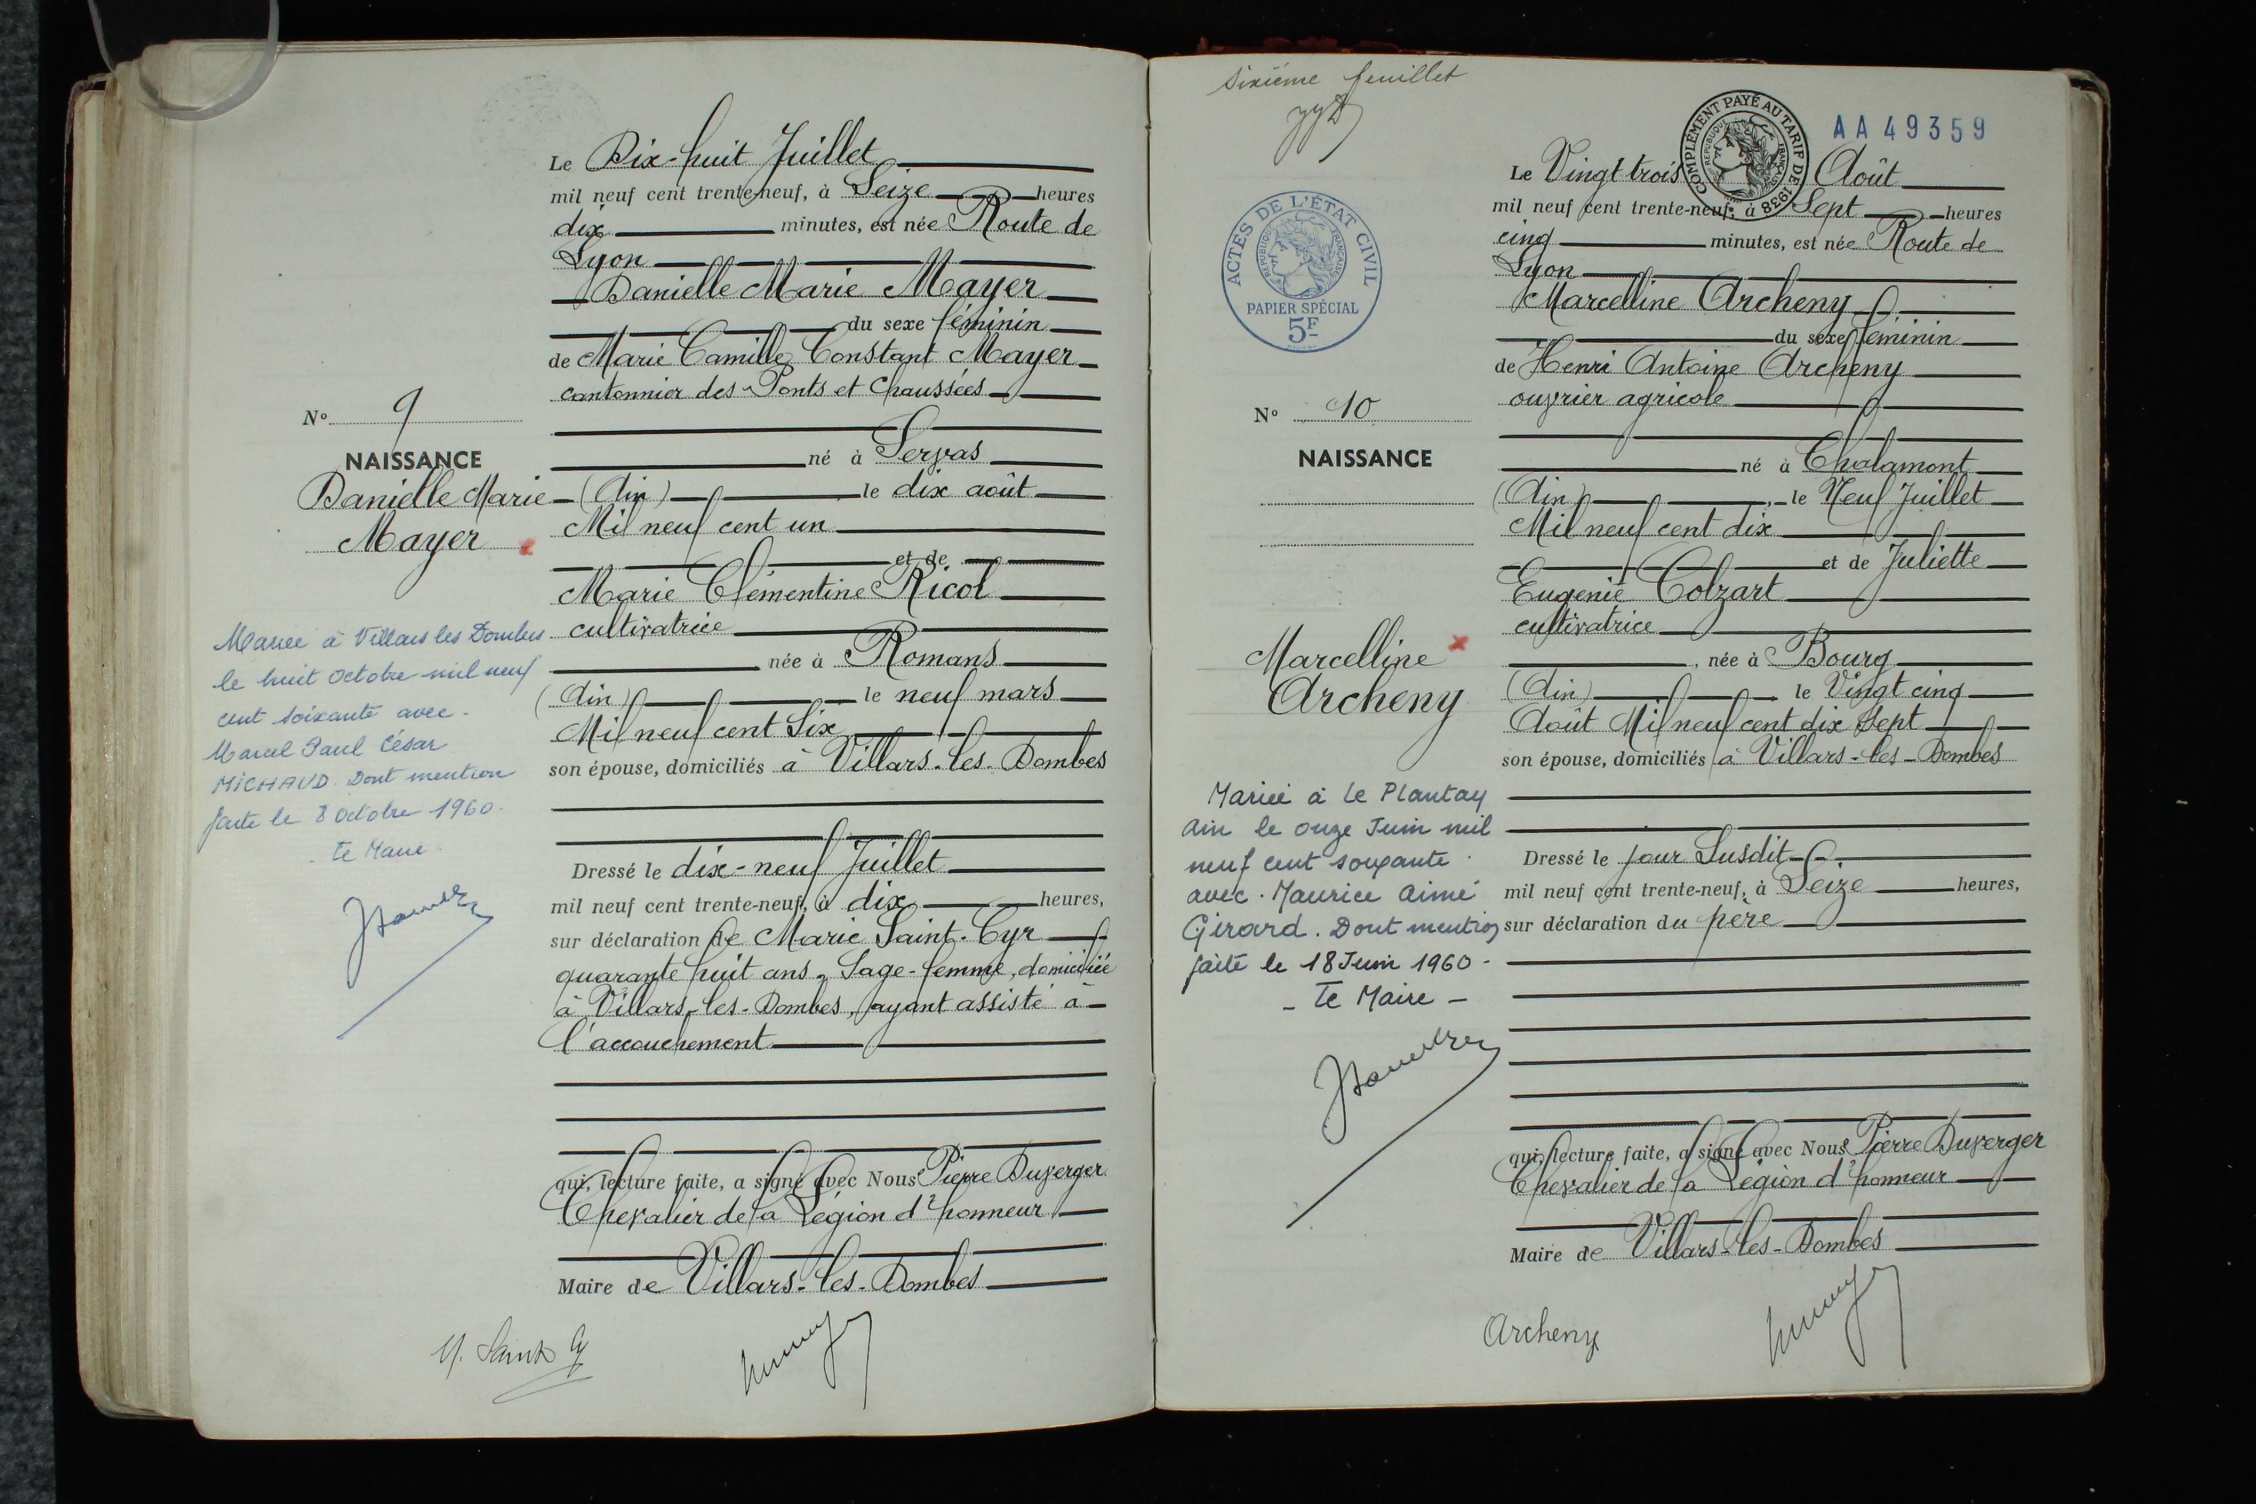 Le Dix-huit Juillet
mil neuf cent trente-neuf, à Seize heures
dix minutes, est née Route de
Lyon
Danielle Marie Mayer
du sexe féminin
de Marie Camille Constant Mayer
cantonnier des Ponts et Chaussées
né à Servas
(Ain) le dix août
Mil neuf cent un
et de
Marie Clémentine Ricol
cultivatrice
née à Romans
(Ain) le neuf mars
Mil neuf cent Six
son épouse, domiciliés à Villars-les-Dombes
Dressé le dix-neuf Juillet
mil neuf cent trente-neuf, à dix heures,
sur déclaration de Marie Saint-Cyr
quarante huit ans, Sage-femme, domiciliée
à Villars-les-Dombes, ayant assisté à
l'accouchement
qui, lecture faite, a signé avec Nous Pierre Duverger
Chevalier de la Légion d'honneur
Maire de Villars-les-Dombes
N° 9
NAISSANCE
Danielle Marie
Mayer
Mariée à Villars les Dombes
le huit octobre mil neuf
cent soixante avec
Marcel Paul César
MICHAUD. Dont mention
faite le 8 octobre 1960.
Le Maire
M. Saint Cy
sixième feuillet
COMPLÉMENT PAYÉ AU TARIF DE 1938
RÉPUBLIQUE FRANÇAISE
AA49359
ACTES DE L'ÉTAT CIVIL
RÉPUBLIQUE FRANÇAISE
PAPIER SPÉCIAL
5F
N° 10
NAISSANCE
Marcelline
Archeny
Mariée à Le Plantay
Ain le onze Juin mil
neuf cent soixante
avec. Maurice Aimé
Girard. Dont mention
faite le 18 Juin 1960 -
- Le Maire -
Le Vingt trois Août
mil neuf cent trente-neuf, à Sept heures
cinq minutes, est née Route de
Lyon
Marcelline Archeny
du sexe féminin
de Henri Antoine Archeny
ouvrier agricole
né à Chalamont
(Ain), le Neuf Juillet
Mil neuf cent dix
et de Juliette
Eugenie Colzart
cultivatrice
, née à Bourg
(Ain) le Vingt cinq
Août Mil neuf cent dix Sept
son épouse, domiciliés à Villars-les-Dombes
Dressé le jour Susdit
mil neuf cent trente-neuf, à Seize heures,
sur déclaration du père
qui, lecture faite, a signé avec Nous Pierre Duverger
Chevalier de la Légion d'honneur
Maire de Villars-les-Dombes
Archeny